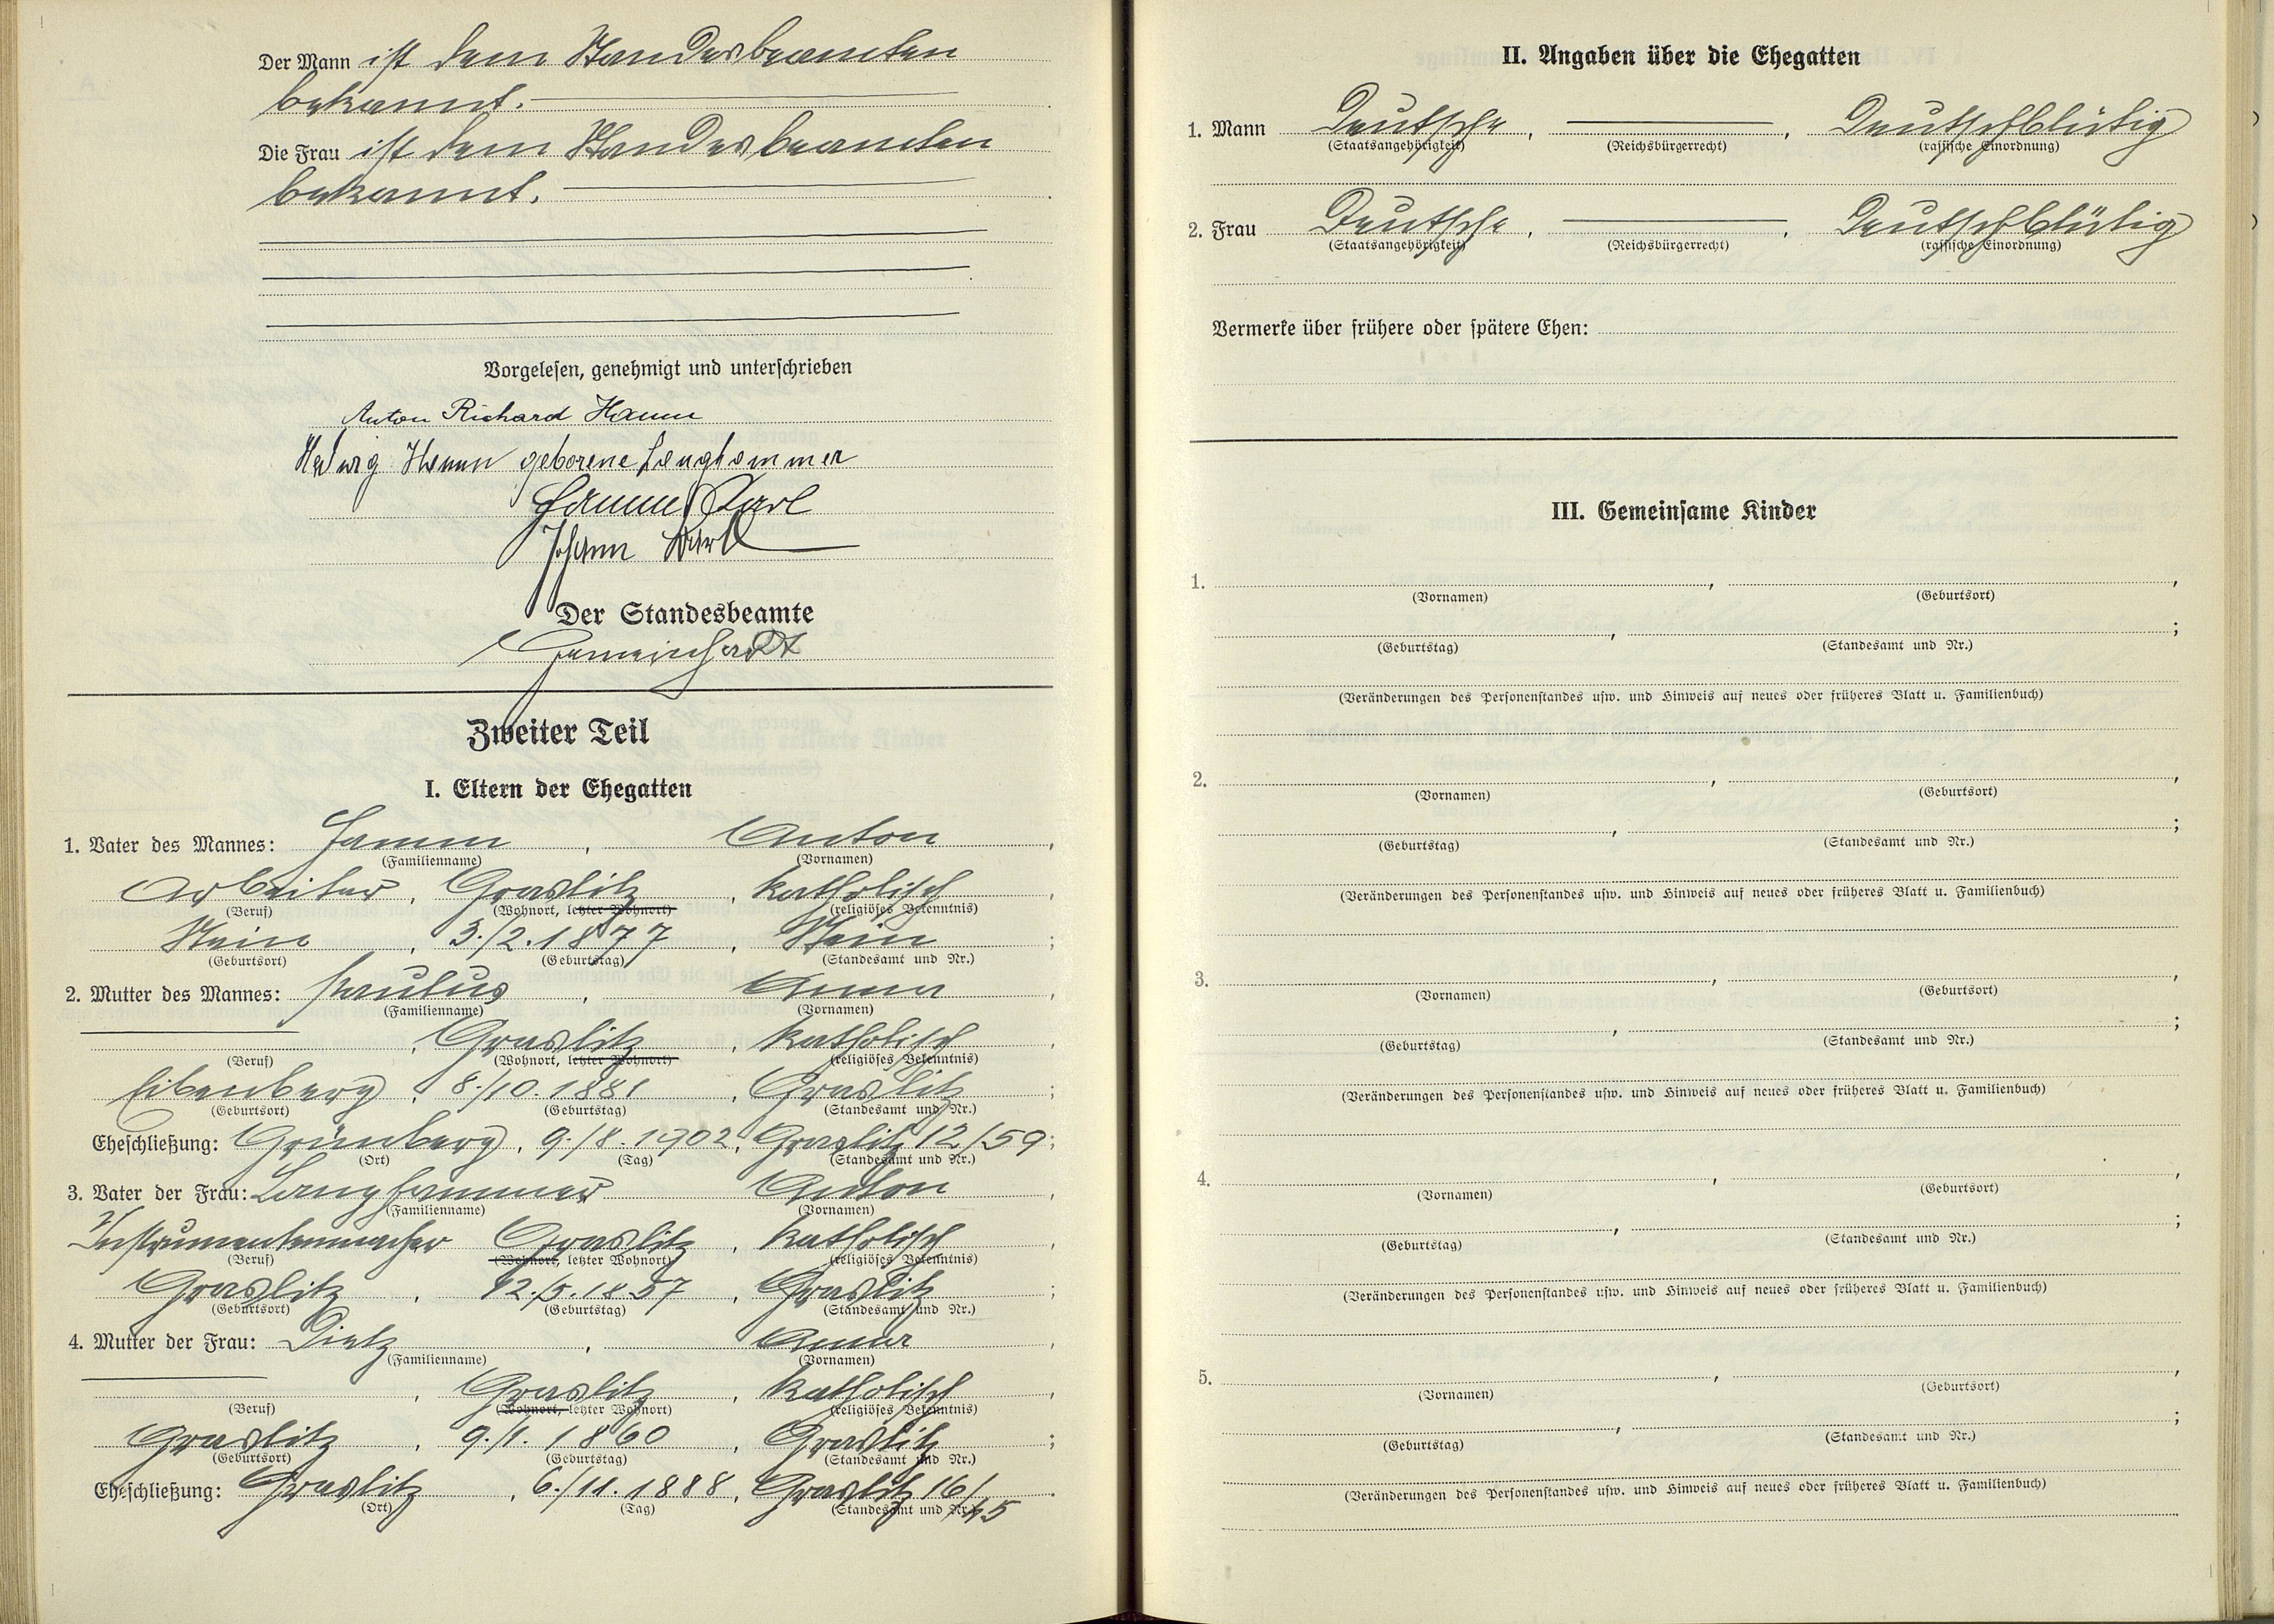 Der Mann ist dem Standesbeamten
bekannt.
Die Frau ist dem Standesbeamten
bekannt.
Vorgelesen, genehmigt und unterschrieben
Anton Richard Hamm
Hedwig Hamm geborene Langhammer
Hamm Karl
Johann
Der Standesbeamte
Gemeinhardt
Zweiter Teil
I. Eltern der Ehegatten
1. Vater des Mannes: Hamm, Anton,
(Familienname) (Vornamen)
Arbeiter, Graslitz, katholisch,
(Beruf) (Wohnort, letzter Wohnort) (religiöses Bekenntnis)
Stein, 3./2.1877, Stein;
(Geburtsort) (Geburtstag) (Standesamt und Nr.)
2. Mutter des Mannes: Paulus, Anna,
(Familienname) (Vornamen)
, Graslitz, katholisch,
(Beruf) (Wohnort, letzter Wohnort) (religiöses Bekenntnis)
Eibenberg, 8./10.1881, Graslitz;
(Geburtsort) (Geburtstag) (Standesamt und Nr.)
Eheschließung: Grünberg, 9./8.1902, Graslitz 12/59;
(Ort) (Tag) (Standesamt und Nr.)
3. Vater der Frau: Langhammer Anton,
(Familienname) (Vornamen)
Instrumentenmacher Graslitz, katholisch,
(Beruf) (Wohnort, letzter Wohnort) (religiöses Bekenntnis)
Graslitz, 12./5.1857, Graslitz;
(Geburtsort) (Geburtstag) (Standesamt und Nr.)
4. Mutter der Frau: Dietz, Anna,
(Familienname) (Vornamen)
, Graslitz, katholisch,
(Beruf) (Wohnort, letzter Wohnort) (religiöses Bekenntnis)
Graslitz, 9./1.1860, Graslitz;
(Geburtsort) (Geburtstag) (Standesamt und Nr.)
Eheschließung: Graslitz, 6./11.1888, Graslitz 16/
(Ort) (Tag) (Standesamt und Nr.)
II. Angaben über die Ehegatten
1. Mann Deutsche, , Deutschblütig
(Staatsangehörigkeit) (Reichsbürgerrecht) (rassische Einordnung)
2. Frau Deutsche, , Deutschblütig
(Staatsangehörigkeit) (Reichsbürgerrecht) (rassische Einordnung)
Vermerke über frühere oder spätere Ehen:
III. Gemeinsame Kinder
1. , ,
(Vornamen) (Geburtsort)
, ;
(Geburtstag) (Standesamt und Nr.)
(Veränderungen des Personenstandes usw. und Hinweis auf neues oder früheres Blatt u. Familienbuch)
2. , ,
(Vornamen) (Geburtsort)
, ;
(Geburtstag) (Standesamt und Nr.)
(Veränderungen des Personenstandes usw. und Hinweis auf neues oder früheres Blatt u. Familienbuch)
3. , ,
(Vornamen) (Geburtsort)
, ;
(Geburtstag) (Standesamt und Nr.)
(Veränderungen des Personenstandes usw. und Hinweis auf neues oder früheres Blatt u. Familienbuch)
4. , ,
(Vornamen) (Geburtsort)
, ;
(Geburtstag) (Standesamt und Nr.)
(Veränderungen des Personenstandes usw. und Hinweis auf neues oder früheres Blatt u. Familienbuch)
5. , ,
(Vornamen) (Geburtsort)
, ;
(Geburtstag) (Standesamt und Nr.)
(Veränderungen des Personenstandes usw. und Hinweis auf neues oder früheres Blatt u. Familienbuch)